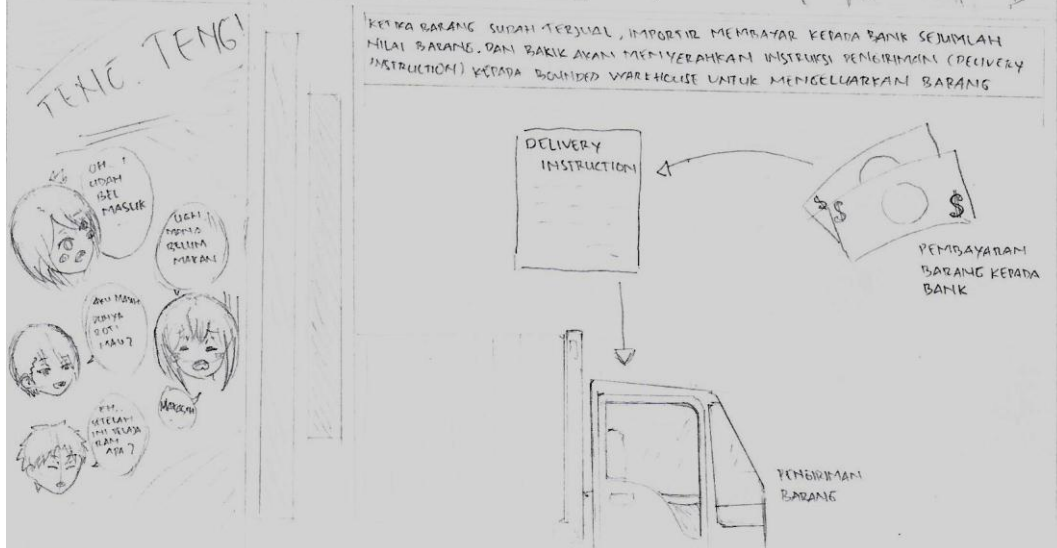 TENG. TENG!
OH..!
UDAH
BEL
MASUK
UGH
MANA
BELUM
MAKAN
AKU MASIH
PUNYA
ROTI
MAU?
MAKASIH
EH..
SETELAH
INI
APA?
KETIKA BARANG SUDAH TERJUAL, IMPORTIR MEMBAYAR KEPADA BANK SEJUMLAH
NILAI BARANG. DAN BANK AKAN MENYERAHKAN INSTRUKSI PENGIRIMAN (DELIVERY
INSTRUCTION) KEPADA BOUNDED WAREHOUSE UNTUK MENGELUARKAN BARANG
DELIVERY
INSTRUCTION
$ $ $
PEMBAYARAN
BARANG KEPADA
BANK
PENGIRIMAN
BARANG